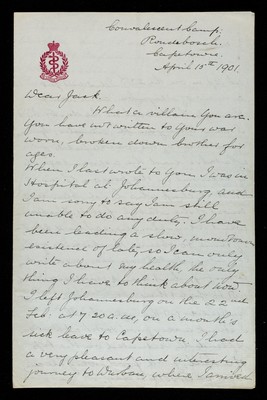 Convalescent Camp,
Rondebosch.
Capetown.
April 15th 1901.
Dear Jack.
What a villain you are.
You have not written to your war
worn, broken down brother for
ages.
When I last wrote to you I was in
Hospital at Johannesburg, and
I am sorry to say I am still
unable to do any duty. I have
been leading a slow, monotonous
existence of late, so I can only
write about my health, the only
thing I have to think about now.
I left Johannesburg on the 22nd
Feb. at 7.20 a.m. on a month's
sick leave to Capetown. I had
a very pleasant and interesting
journey to Durban, where I arrived